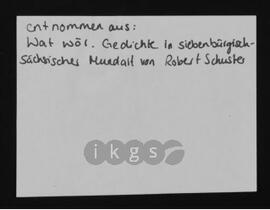 entnommen aus:
Wat wör. Gedichte in siebenbürgisch-
sächsischer Mundart von Robert Schuster
ikgs